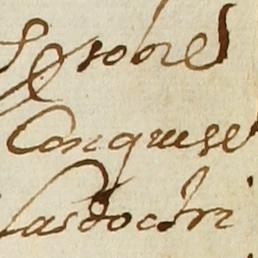 sobre
Conquese
las doctri